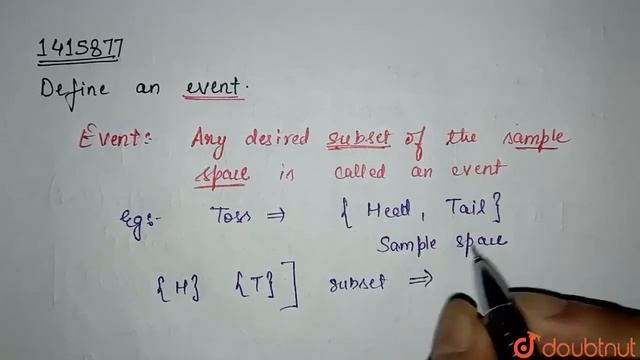 1415877
Define an event.
Event:- Any desired subset of the sample
space is called an event
Eg:- Toss ⇒ { Head, Tail}
Sample space
{H} {T}] subset ⇒
doubtnut